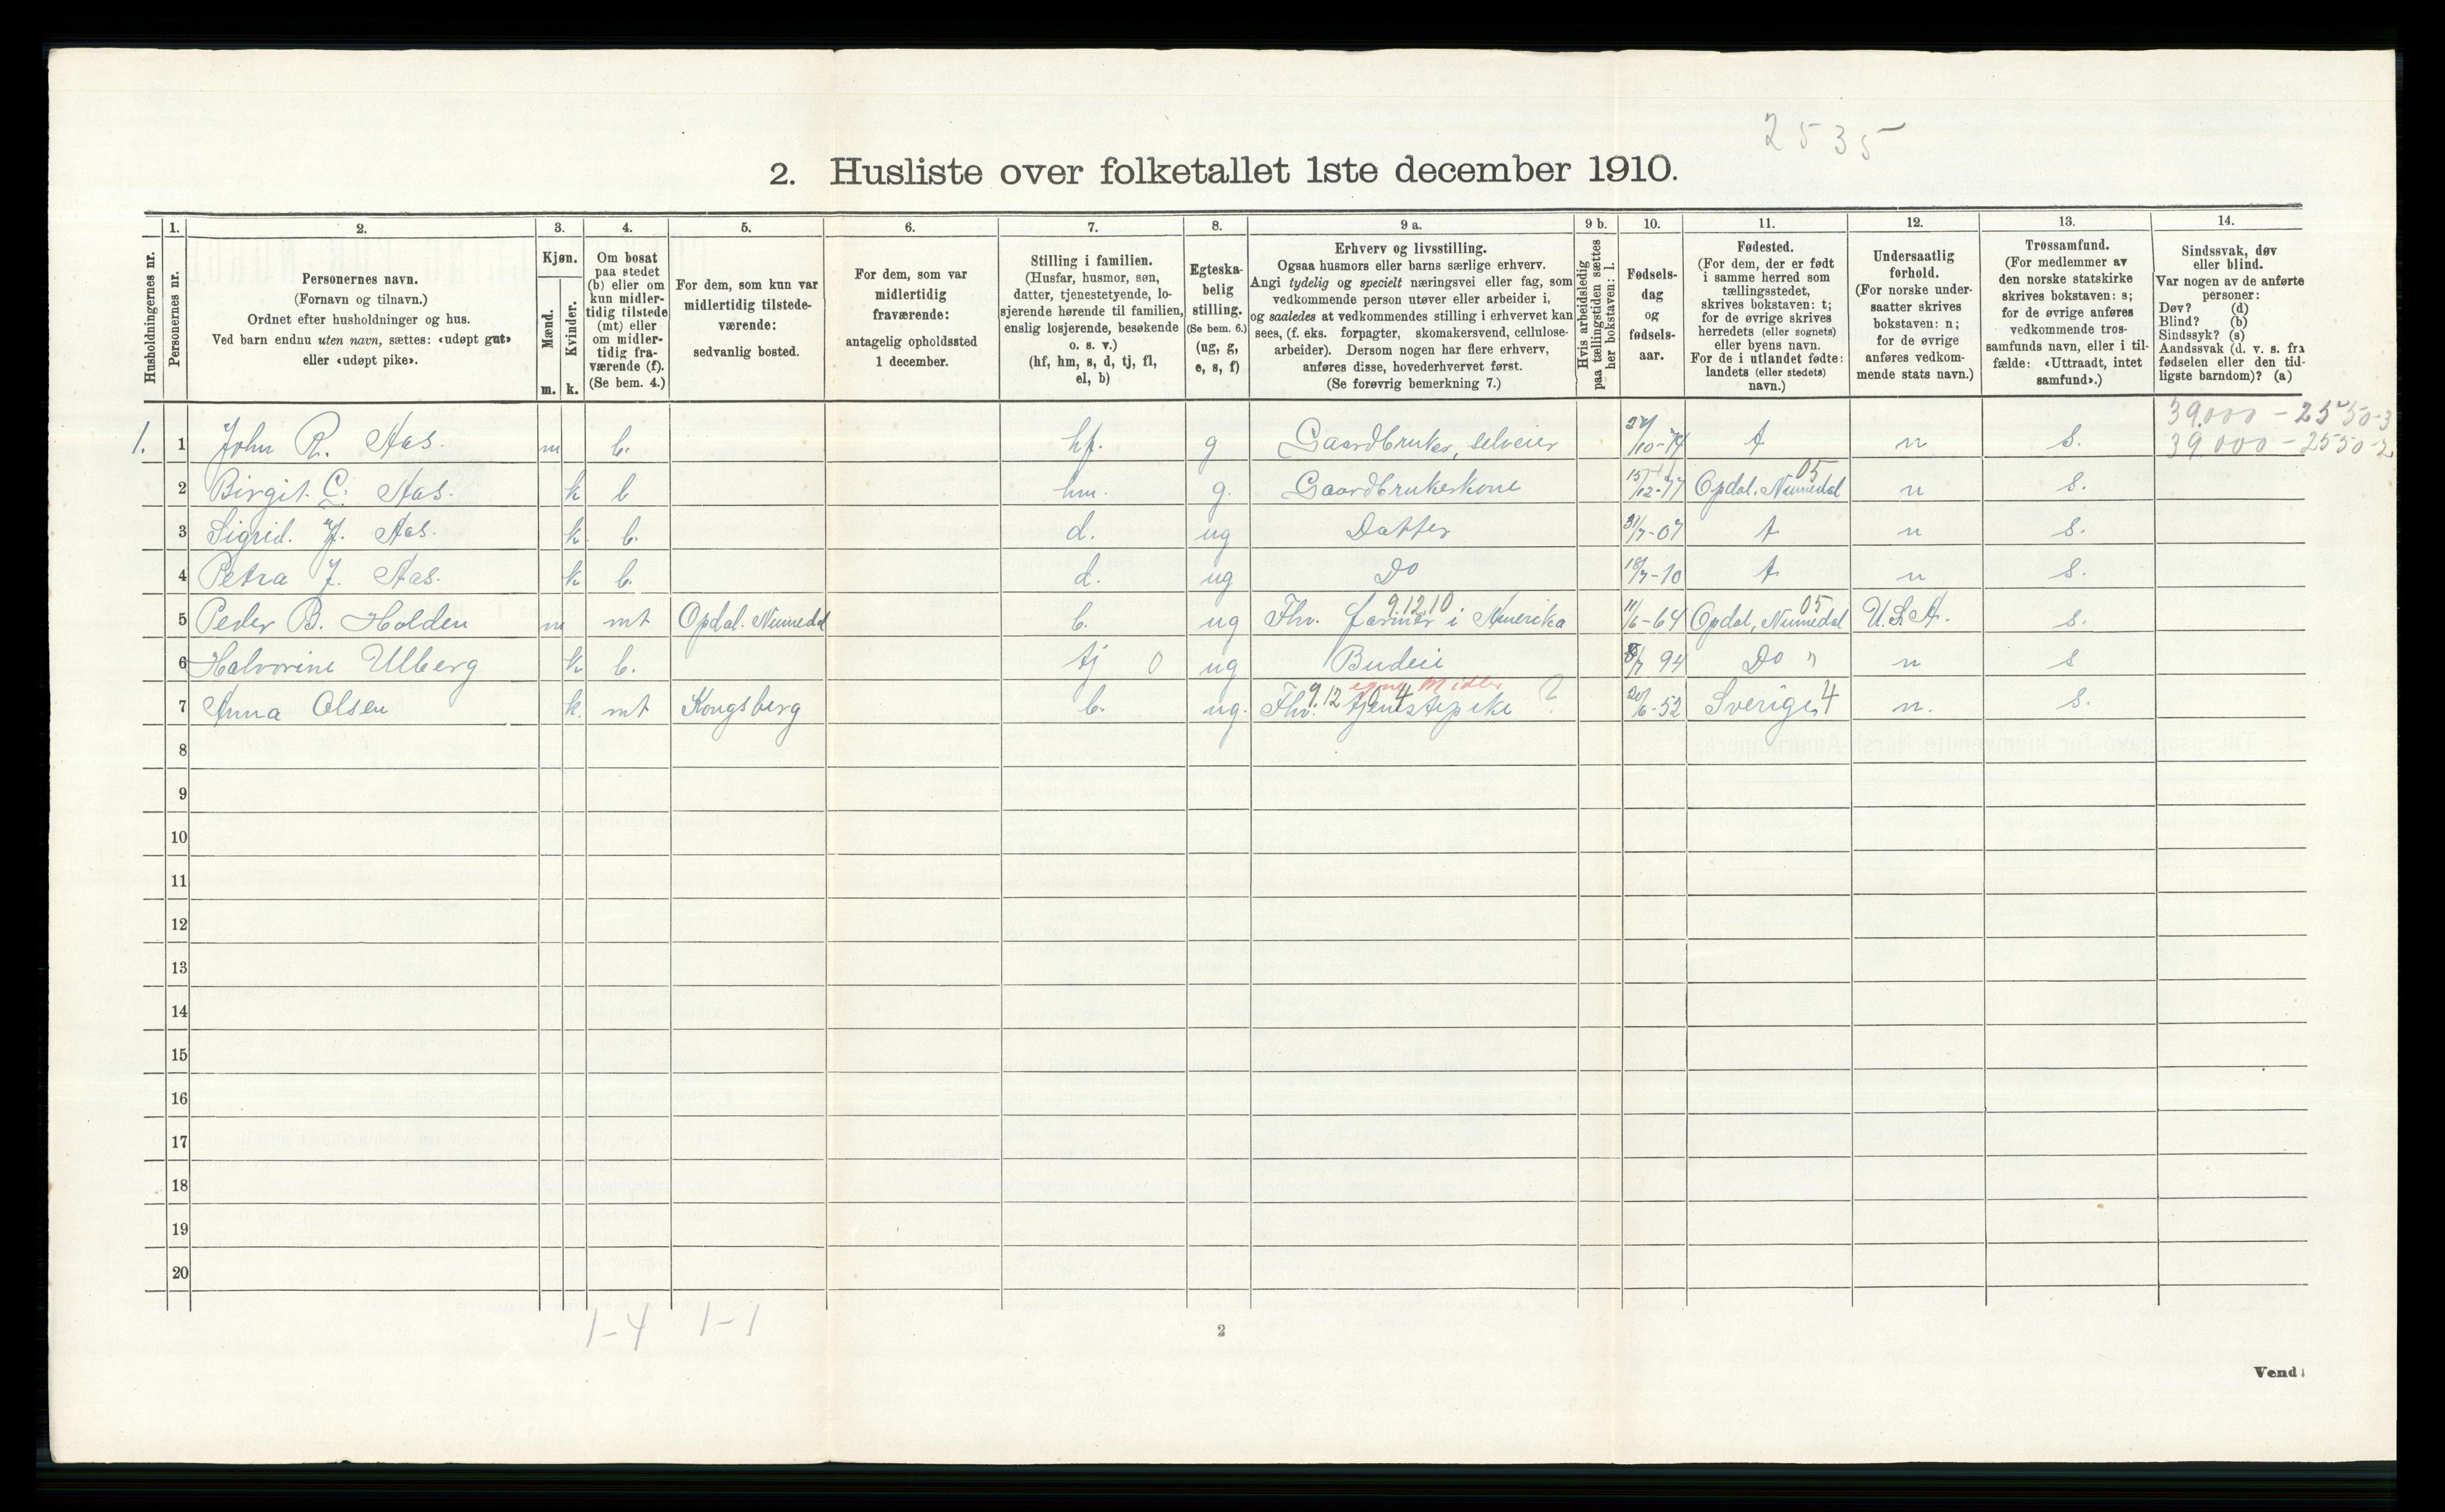 2535
2. Husliste over folketallet 1ste december 1910.
Husholdningernes nr.
1.
Personernes nr.
2.
Personernes navn.
(Fornavn og tilnavn.)
Ordnet efter husholdninger og hus.
Ved barn endnu uten navn, sættes: «udøpt gut»
eller «udøpt pike».
3.
Kjøn.
Mænd.
m.
Kvinder.
k.
4.
Om bosat
paa stedet
(b) eller om
kun midler-
tidig tilstede
(mt) eller
om midler-
tidig fra-
værende (f).
(Se bem. 4.)
5.
For dem, som kun var
midlertidig tilstede-
værende:
sedvanlig bosted.
6.
For dem, som var
midlertidig
fraværende:
antagelig opholdssted
1 december.
7.
Stilling i familien.
(Husfar, husmor, søn,
datter, tjenestetyende, lo-
sjerende hørende til familien,
enslig losjerende, besøkende
o. s. v.)
(hf, hm, s, d, tj, fl,
el, b)
8.
Egteska-
belig
stilling.
(Se bem. 6.)
(ug, g,
e, s, f)
9 a.
Erhverv og livsstilling.
Ogsaa husmors eller barns særlige erhverv.
Angi tydelig og specielt næringsvei eller fag, som
vedkommende person utøver eller arbeider i,
og saaledes at vedkommendes stilling i erhvervet kan
sees, (f. eks. forpagter, skomakersvend, cellulose-
arbeider). Dersom nogen har flere erhverv,
anføres disse, hovederhvervet først.
(Se forøvrig bemerkning 7.)
9 b.
Hvis arbeidsledig
paa tællingstiden sættes
her bokstaven: l.
10.
Fødsels-
dag
og
fødsels-
aar.
11.
Fødested.
(For dem, der er født
i samme herred som
tællingsstedet,
skrives bokstaven: t;
for de øvrige skrives
herredets (eller sognets)
eller byens navn.
For de i utlandet fødte:
landets (eller stedets)
navn.)
12.
Undersaatlig
forhold.
(For norske under-
saatter skrives
bokstaven: n;
for de øvrige
anføres vedkom-
mende stats navn.)
13.
Trossamfund.
(For medlemmer av
den norske statskirke
skrives bokstaven: s;
for de øvrige anføres
vedkommende tros-
samfunds navn, eller i til-
fælde: «Uttraadt, intet
samfund».)
14.
Sindssvak, døv
eller blind.
Var nogen av de anførte
personer:
Døv? (d)
Blind? (b)
Sindssyk? (s)
Aandssvak (d. v. s. fra
fødselen eller den tid-
ligste barndom)? (a)
39.000 - 2550-3
1. 1 John R. Aas. m b. hf. g Gaardbruker, selveier /10-74 t n s. 39.000 - 2550-2
2 Birgit. C. Aas. k b hm. g. Gaardbrukerkone 15/12-77 Opdal. Numedal 05 n s.
3 Sigrid. J. Aas. k. b. d. ug Datter 31/7-07 t n s.
4 Petra J. Aas. k b. d. ug Do 18/7-10 t n s.
5 Peder B. Holden m mt Opdal. Numedal b. ug Fhv. farmer i Amerika 9.12.10 11/6-64 Opdal, Numedal 05 U.S.A. s.
6 Halvorine Ulberg k. b. tj 0 ug Budeie /7 94 Do " n s
7 Anna Olsen k. mt Kongsberg b. ug. Fhv. Tjenestepike 9.12 4 egne Midler ? 20/6-52 Sverige, 4 n. s.
8
9
10
11
12
13
14
15
16
17
18
19
20
1-4 1-1
2
Vend!